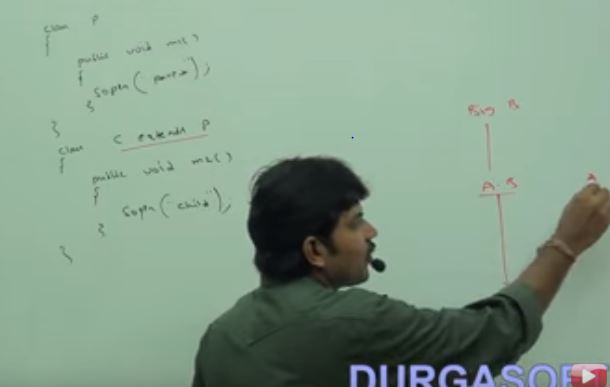 class P
{
public void m1()
{
Sopln("parent");
}
}
class C extends P
{
public void m2()
{
Sopln("child");
}
}
Big B
A.B
A
DURGASOF